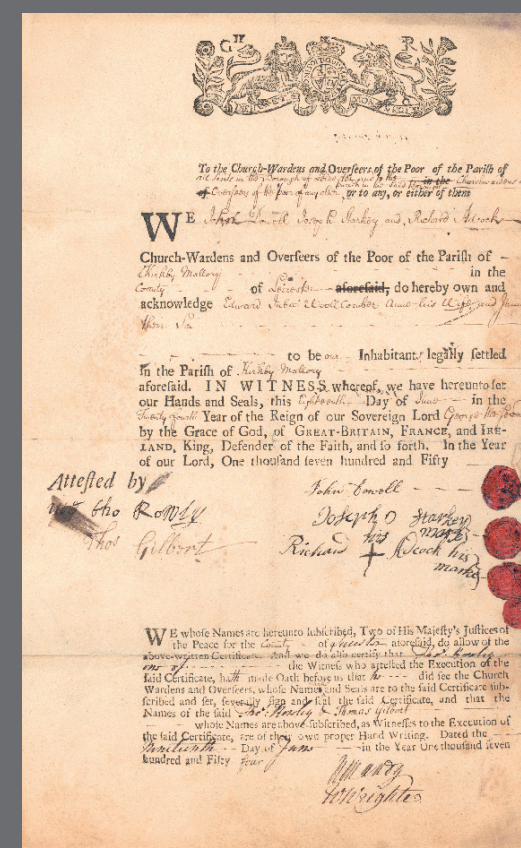 G II R
To the Church-Wardens and Overseers of the Poor of the Parish of
all Saints in the Borough of in the Church wardens
or Overseers of the Poor of any other or to any, or either of them
WE John Dowell Joseph Starkey and Richard Adcock
Church-Wardens and Overseers of the Poor of the Parish of
Kirkby Mallory in the
County of Leicester aforesaid, do hereby own and
acknowledge Edward Wooll Comber Anne his Wife and
their Son
to be our Inhabitants legally settled
in the Parish of Kirkby Mallory
aforesaid. IN WITNESS whereof, we have hereunto set
our Hands and Seals, this Eighteenth Day of June in the
Twenty fourth Year of the Reign of our Sovereign Lord George the
by the Grace of God, of GREAT-BRITAIN, FRANCE, and IRE-
LAND, King, Defender of the Faith, and so forth. In the Year
of our Lord, One thousand seven hundred and Fifty
Attested by
John Dowell
Tho Rowly
Joseph O Starkey
his mark
Thos Gilbert
Richard + Adcock his
mark
WE whose Names are hereunto subscribed, Two of His Majesty's Justices of
the Peace for the County of Leicester aforesaid, do allow of the
above-written Certificate. And we do also certify that Thos Rowley
one of the Witness who attested the Execution of the
said Certificate, hath made Oath before us that he did see the Church
Wardens and Overseers, whose Names and Seals are to the said Certificate sub-
scribed and set, severally sign and seal the said Certificate, and that the
Names of the said Thos Rowley & Thomas Gilbert
whose Names are above-subscribed, as Witnesses to the Execution of
the said Certificate, are of their own proper Hand Writing. Dated the
Nineteenth Day of June in the Year One thousand seven
hundred and Fifty four
Wrighte